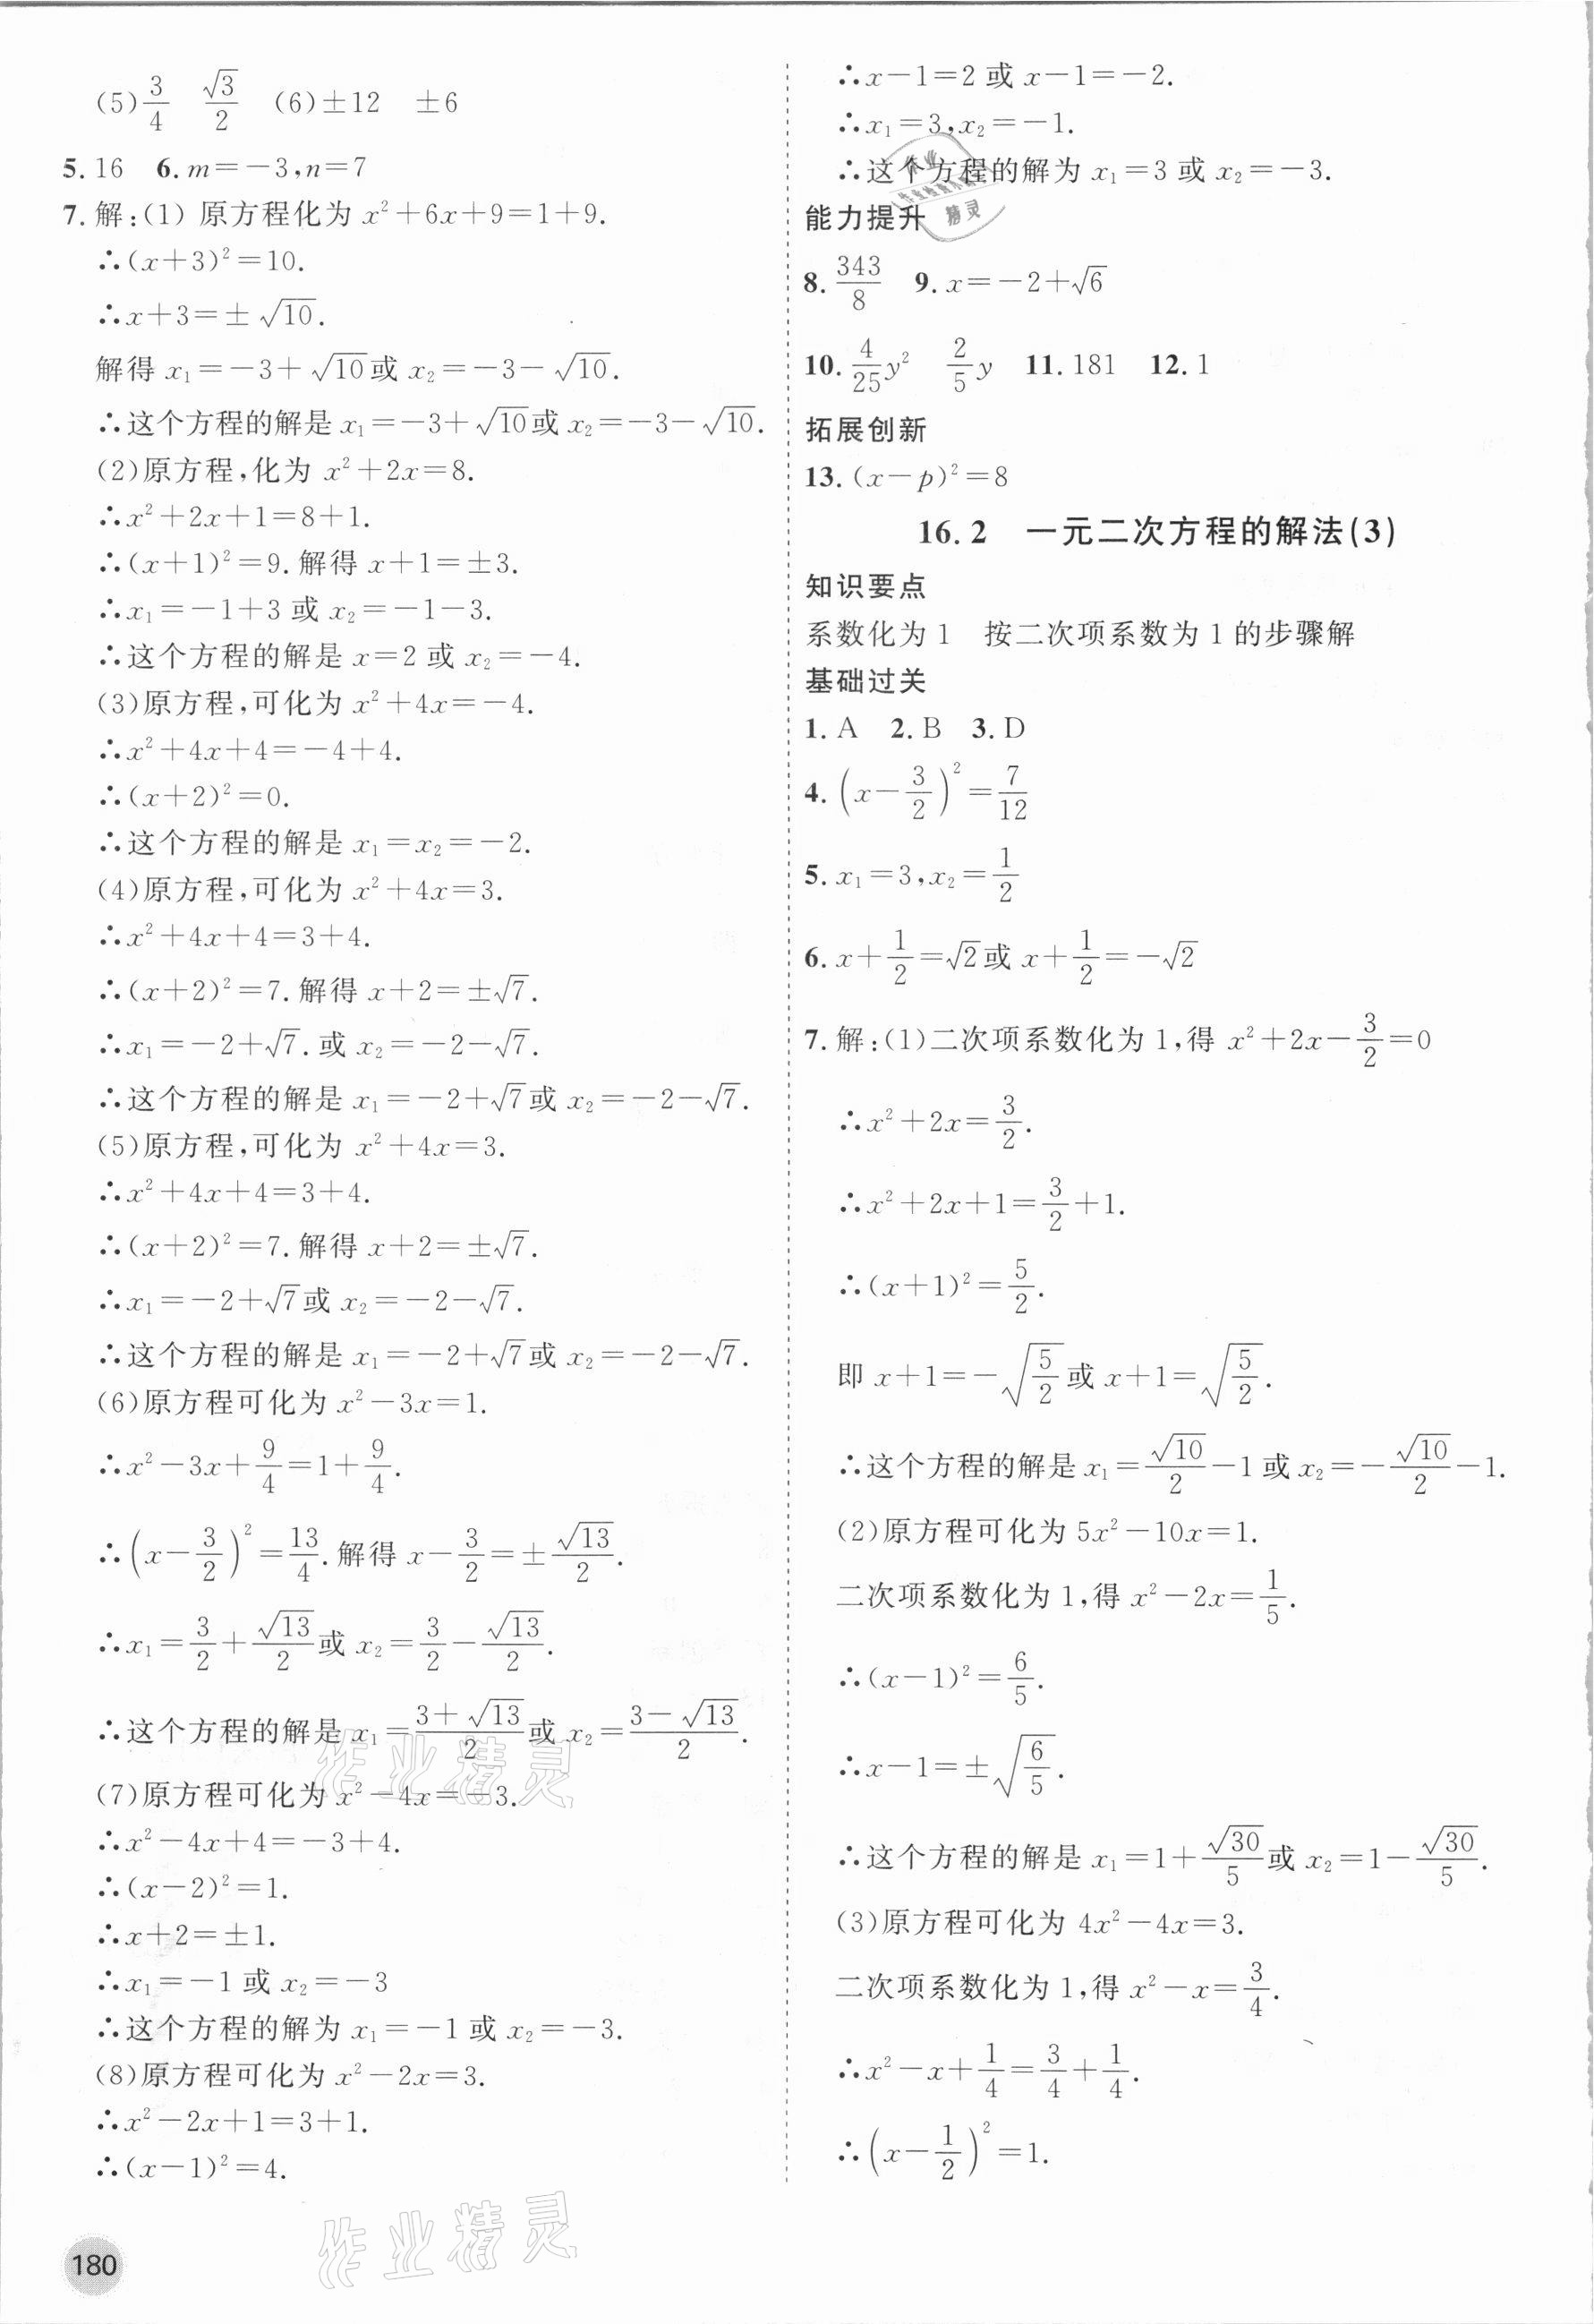 (5)3/4　√3/2　(6)±12　±6
5. 16　6. m=−3,n=7
7. 解:(1) 原方程化为 x²+6x+9=1+9.
∴(x+3)²=10.
∴x+3=±√10.
解得 x₁=−3+√10或 x₂=−3−√10.
∴这个方程的解是 x₁=−3+√10或 x₂=−3−√10.
(2)原方程,化为 x²+2x=8.
∴x²+2x+1=8+1.
∴(x+1)²=9.解得 x+1=±3.
∴x₁=−1+3 或 x₂=−1−3.
∴这个方程的解是 x=2 或 x₂=−4.
(3)原方程,可化为 x²+4x=−4.
∴x²+4x+4=−4+4.
∴(x+2)²=0.
∴这个方程的解是 x₁=x₂=−2.
(4)原方程,可化为 x²+4x=3.
∴x²+4x+4=3+4.
∴(x+2)²=7.解得 x+2=±√7.
∴x₁=−2+√7.或 x₂=−2−√7.
∴这个方程的解是 x₁=−2+√7或 x₂=−2−√7.
(5)原方程,可化为 x²+4x=3.
∴x²+4x+4=3+4.
∴(x+2)²=7.解得 x+2=±√7.
∴x₁=−2+√7或 x₂=−2−√7.
∴这个方程的解是 x₁=−2+√7或 x₂=−2−√7.
(6)原方程可化为 x²−3x=1.
∴x²−3x+9/4=1+9/4.
∴(x−3/2)²=13/4.解得 x−3/2=±√13/2.
∴x₁=3/2+√13/2或 x₂=3/2−√13/2.
∴这个方程的解是 x₁=(3+√13)/2或 x₂=(3−√13)/2.
(7)原方程可化为 x²−4x=−3.
∴x²−4x+4=−3+4.
∴(x−2)²=1.
∴x+2=±1.
∴x₁=−1 或 x₂=−3
∴这个方程的解为 x₁=−1 或 x₂=−3.
(8)原方程可化为 x²−2x=3.
∴x²−2x+1=3+1.
∴(x−1)²=4.
∴x−1=2 或 x−1=−2.
∴x₁=3,x₂=−1.
∴这个方程的解为 x₁=3 或 x₂=−3.
能力提升
8. 343/8　9. x=−2+√6
10. 4/25y²　2/5y　11. 181　12. 1
拓展创新
13. (x−p)²=8
16.2　一元二次方程的解法(3)
知识要点
系数化为 1　按二次项系数为 1 的步骤解
基础过关
1. A　2. B　3. D
4. (x−3/2)²=7/12
5. x₁=3,x₂=1/2
6. x+1/2=√2或 x+1/2=−√2
7. 解:(1)二次项系数化为 1,得 x²+2x−3/2=0
∴x²+2x=3/2.
∴x²+2x+1=3/2+1.
∴(x+1)²=5/2.
即 x+1=−√(5/2)或 x+1=√(5/2).
∴这个方程的解是 x₁=√10/2−1 或 x₂=−√10/2−1.
(2)原方程可化为 5x²−10x=1.
二次项系数化为 1,得 x²−2x=1/5.
∴(x−1)²=6/5.
∴x−1=±√(6/5).
∴这个方程的解是 x₁=1+√30/5或 x₂=1−√30/5.
(3)原方程可化为 4x²−4x=3.
二次项系数化为 1,得 x²−x=3/4.
∴x²−x+1/4=3/4+1/4.
∴(x−1/2)²=1.
作业精灵
作业精灵
180